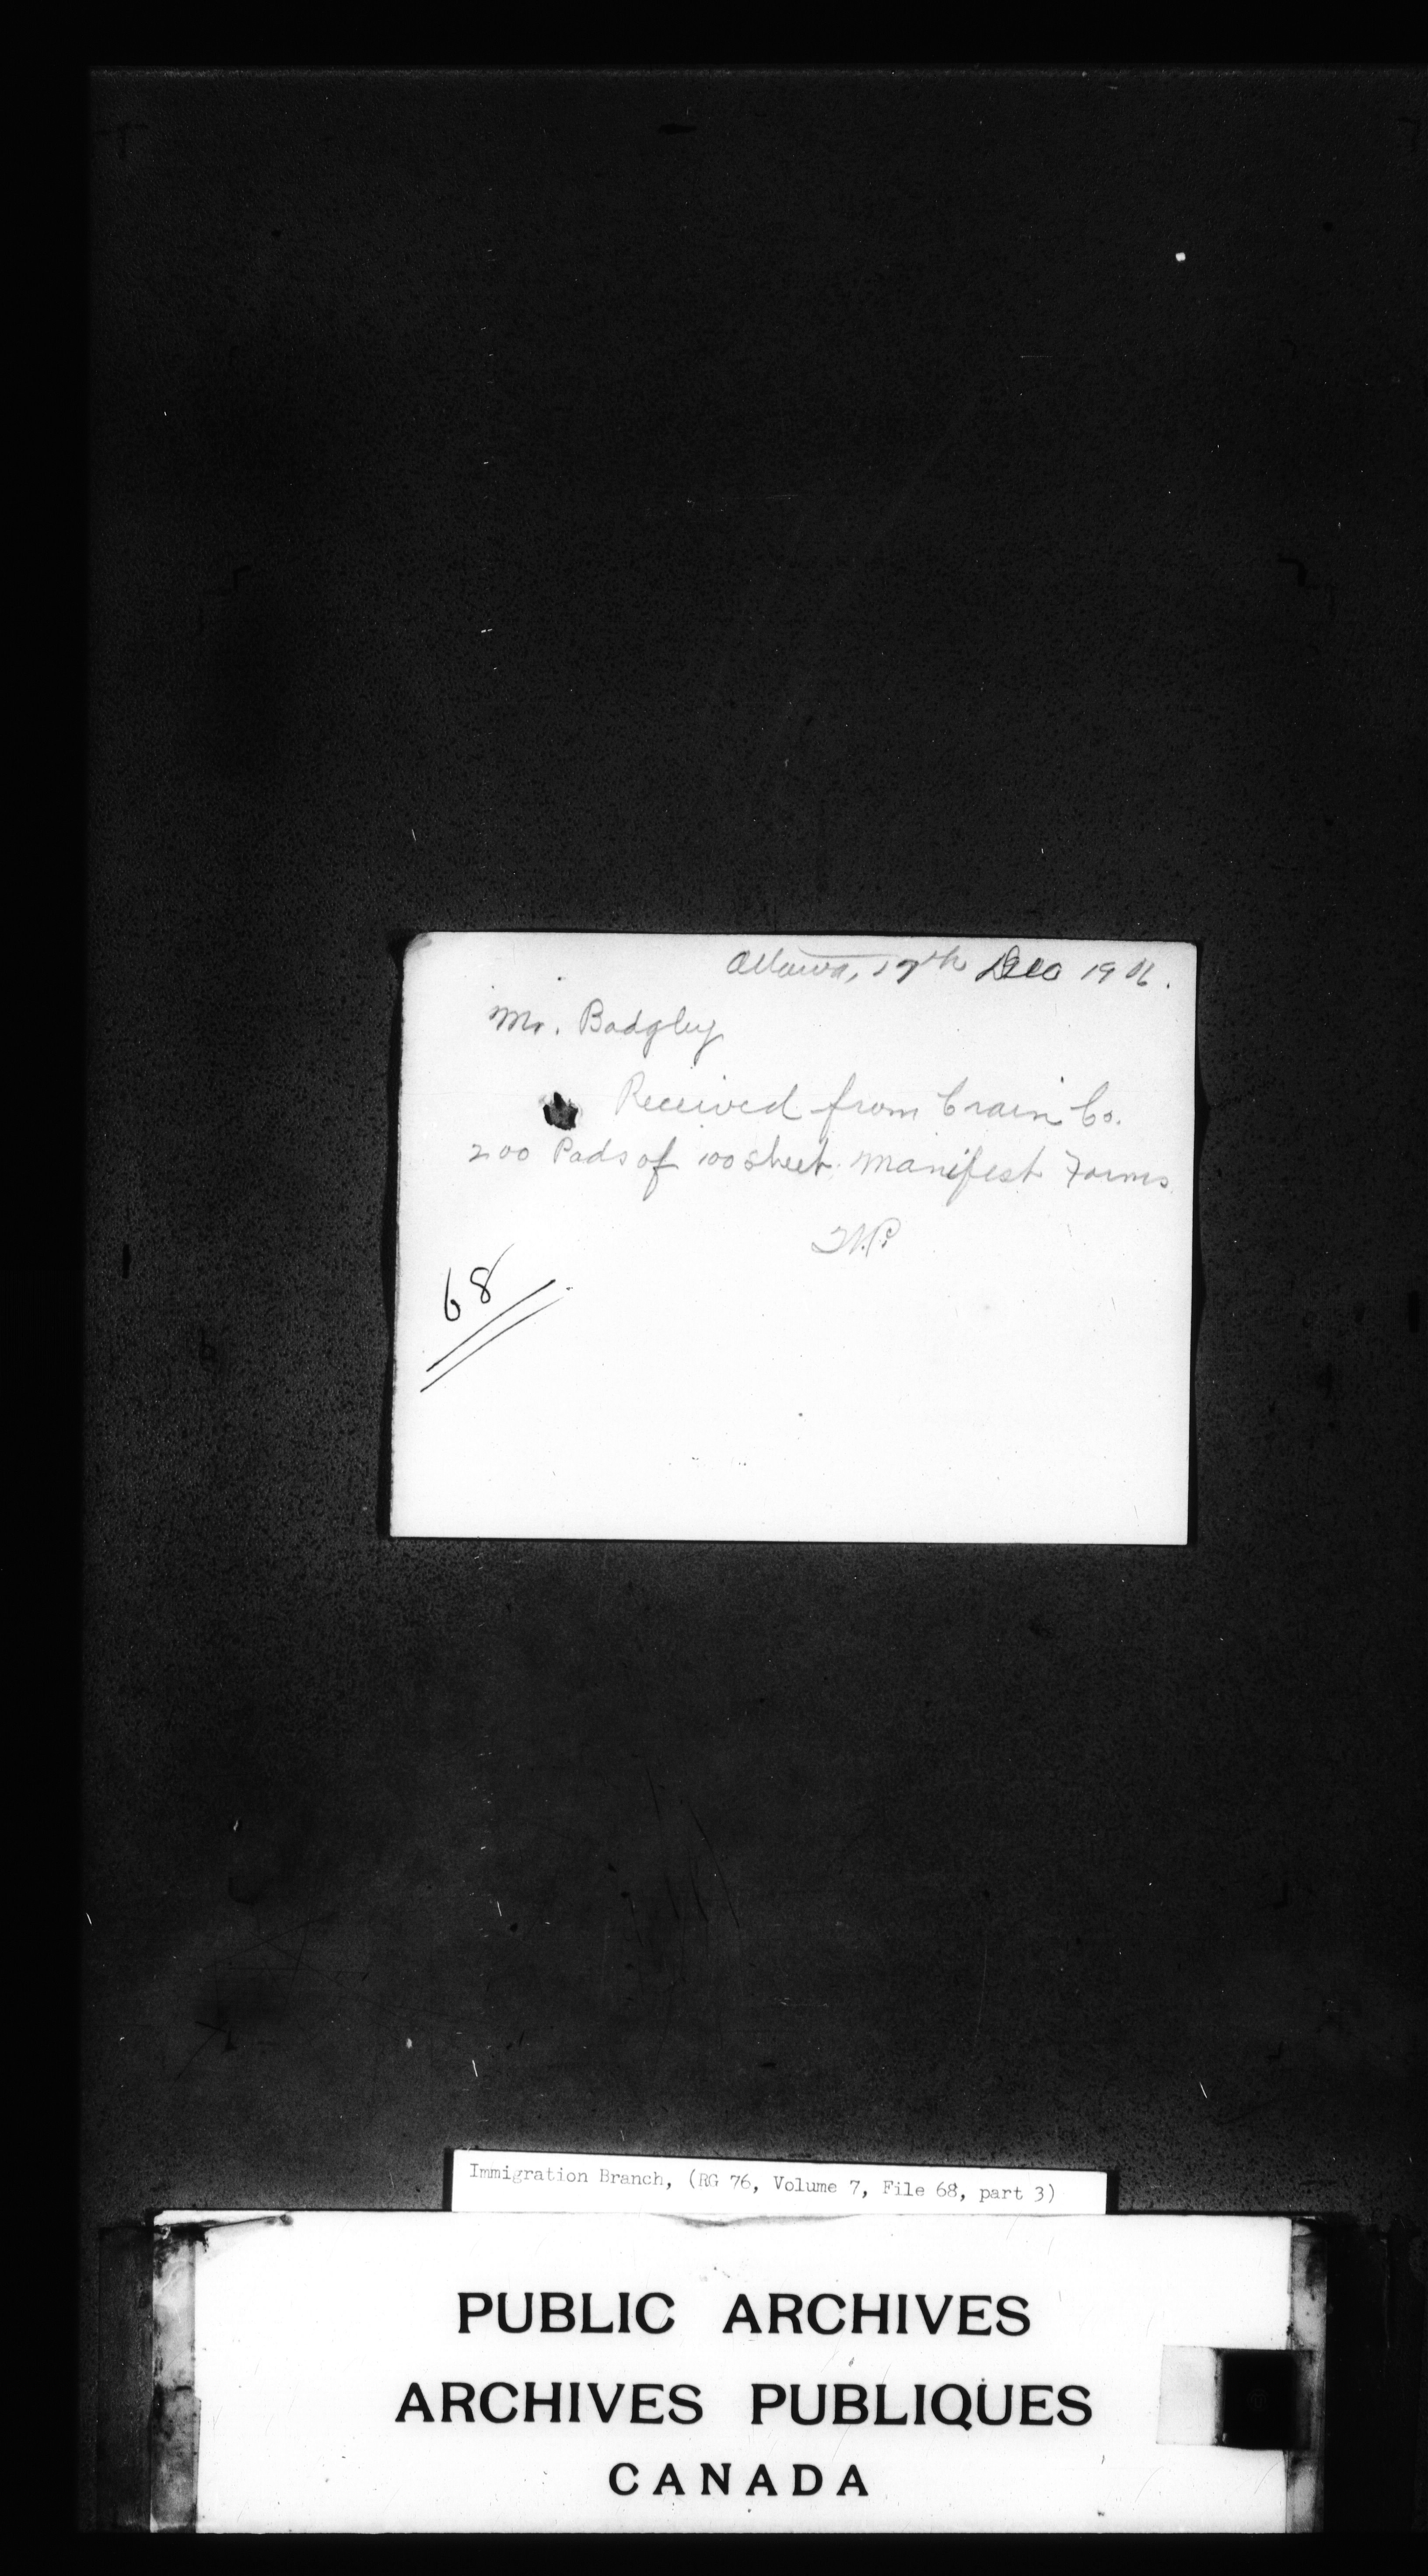 Ottawa, 17th Dec 1906.
Mr. Badgley
Received from Crain Co.
200 Pads of 100 sheet Manifest Forms
68
Immigration Branch, (RG 76, Volume 7, File 68, part 3)
PUBLIC ARCHIVES
ARCHIVES PUBLIQUES
CANADA